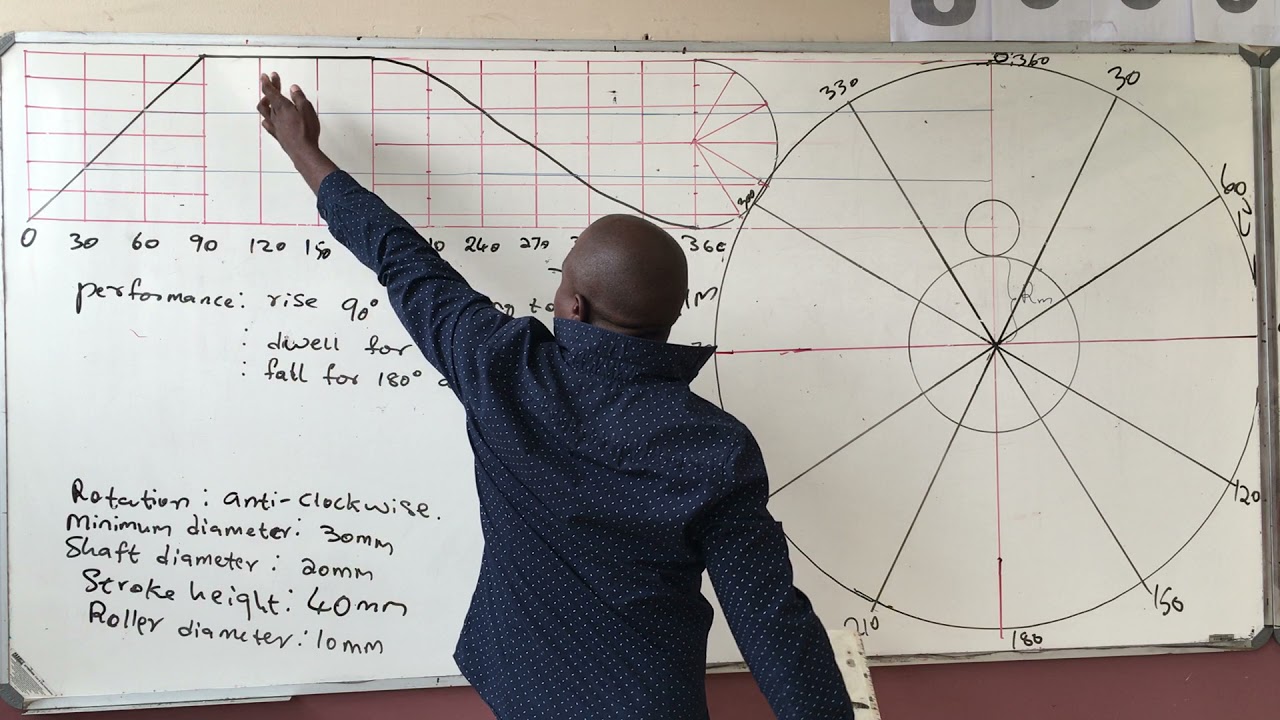 0:360
330
30
60
300
0 30 60 90 120 150 240 270 360
performance: rise 90°
: diwell for
: fall for 180°
Rm
120
150
180
210
Rotation: anti-clockwise.
Minimum diameter: 30mm
Shaft diameter: 20mm
Stroke height: 40mm
Roller diameter: 10mm